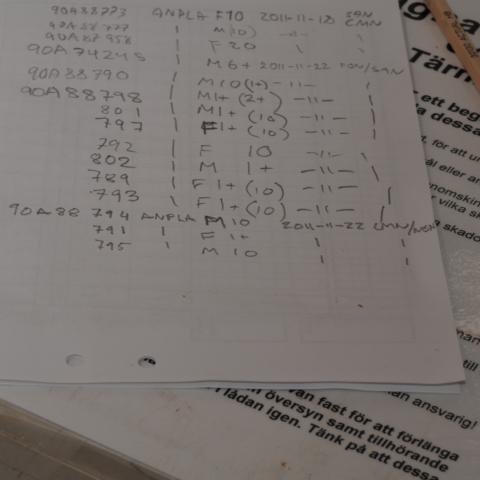 90A88773 ANPLA F10 2011-11-18 SAN
90A88777 | M 10) -"- CMN
90A87958 | F 20 \ \
90A74245 | M 6+ 2011-11-22 FON/SAN
90A88790 | M10(1+) -"- /
90A88798 | M1+ (2+) -"- |
801 | M1+ (10) -"- \
797 | F1+ (10) -"- |
792 | F 10 -"- \
802 | M 1+ -"- \
789 | F 1+ (10) -"- /
793 \ F 1+ (10) -"- /
90A88 794 ANPLA M 10 2011-11-22 CMN/
791 | F 1+ \ \
795 ' M 10 | |
Tärn
- ett beg
dessa
för att
ål eller
nomskin
vilka
skador
an ansvarig!
van fast för att förlänga
översyn samt tillhörande
lådan igen. Tänk på att dessa